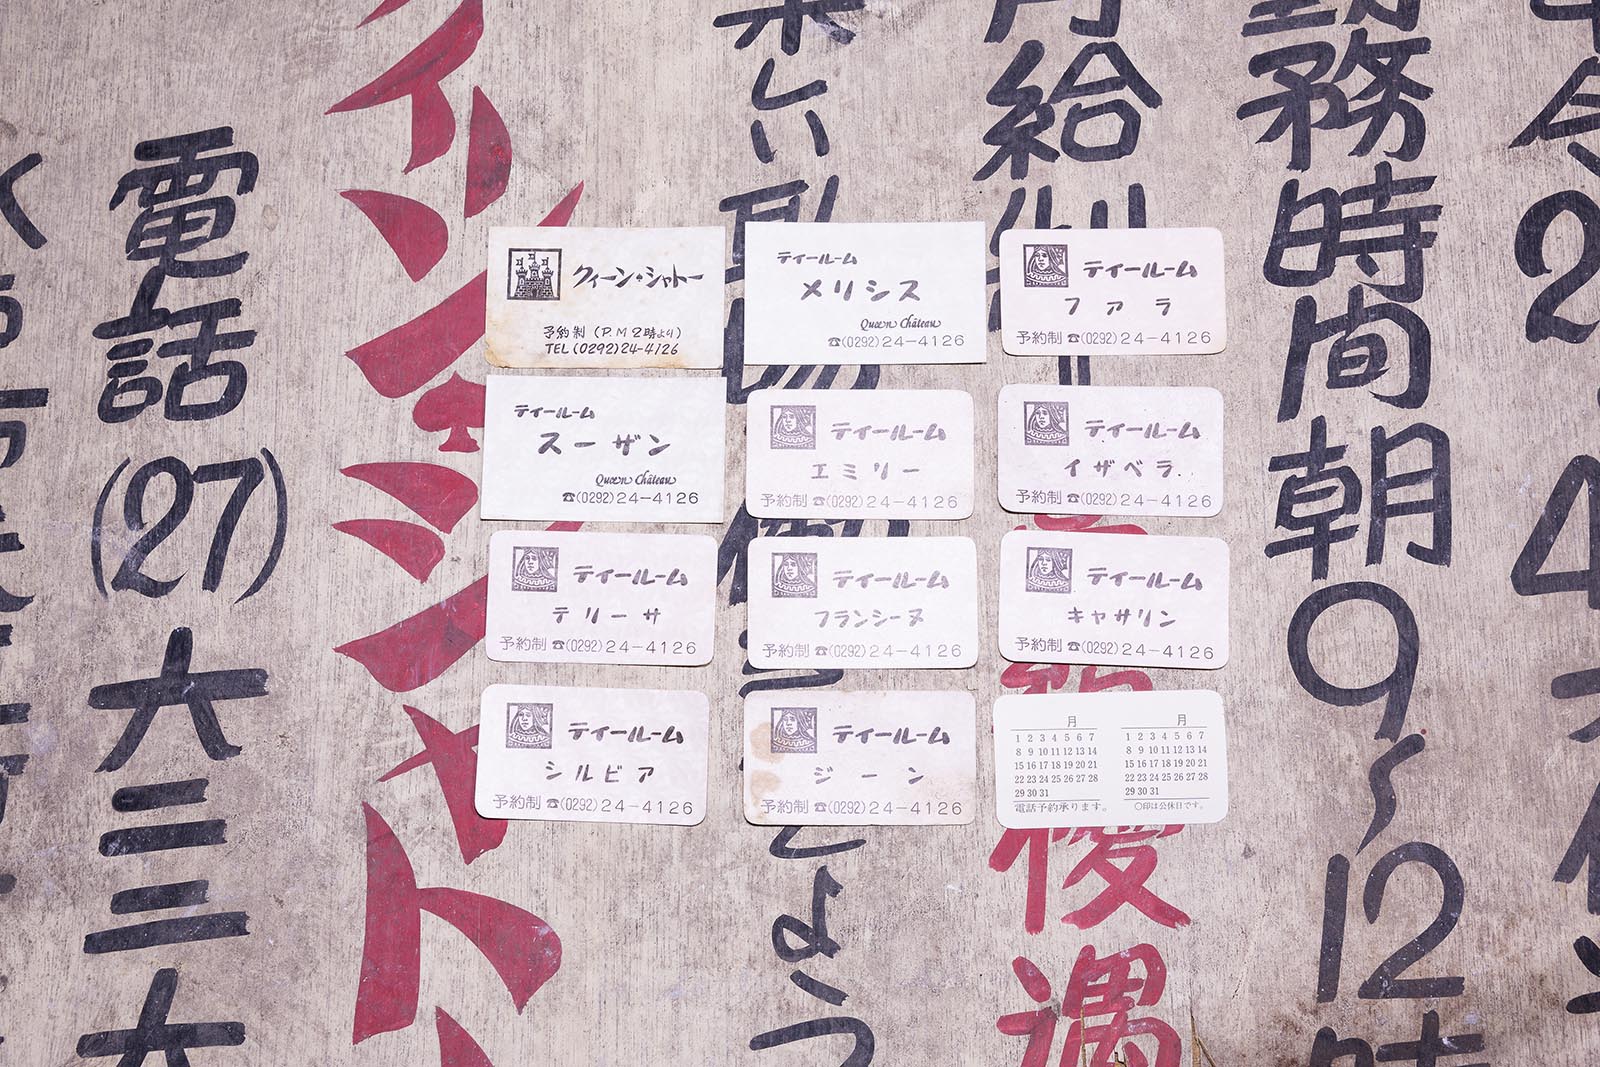 クィーン・シャトー
予約制(P.M 2時より)
TEL(0292)24-4126
ティールーム
メリシス
Queen Château
☎(0292)24-4126
ティールーム
ファラ
予約制 ☎(0292)24-4126
ティールーム
スーザン
Queen Château
☎(0292)24-4126
ティールーム
エミリー
予約制 ☎(0292)24-4126
ティールーム
イザベラ
予約制 ☎(0292)24-4126
ティールーム
テリーサ
予約制 ☎(0292)24-4126
ティールーム
フランシーヌ
予約制 ☎(0292)24-4126
ティールーム
キャサリン
予約制 ☎(0292)24-4126
ティールーム
シルビア
予約制 ☎(0292)24-4126
ティールーム
ジーン
予約制 ☎(0292)24-4126
月
1 2 3 4 5 6 7
8 9 10 11 12 13 14
15 16 17 18 19 20 21
22 23 24 25 26 27 28
29 30 31
電話予約承ります。
月
1 2 3 4 5 6 7
8 9 10 11 12 13 14
15 16 17 18 19 20 21
22 23 24 25 26 27 28
29 30 31
○印は公休日です。
務時間朝9〜12時
給
優遇
しい
ィン♠シャト
電話(27)六三三六